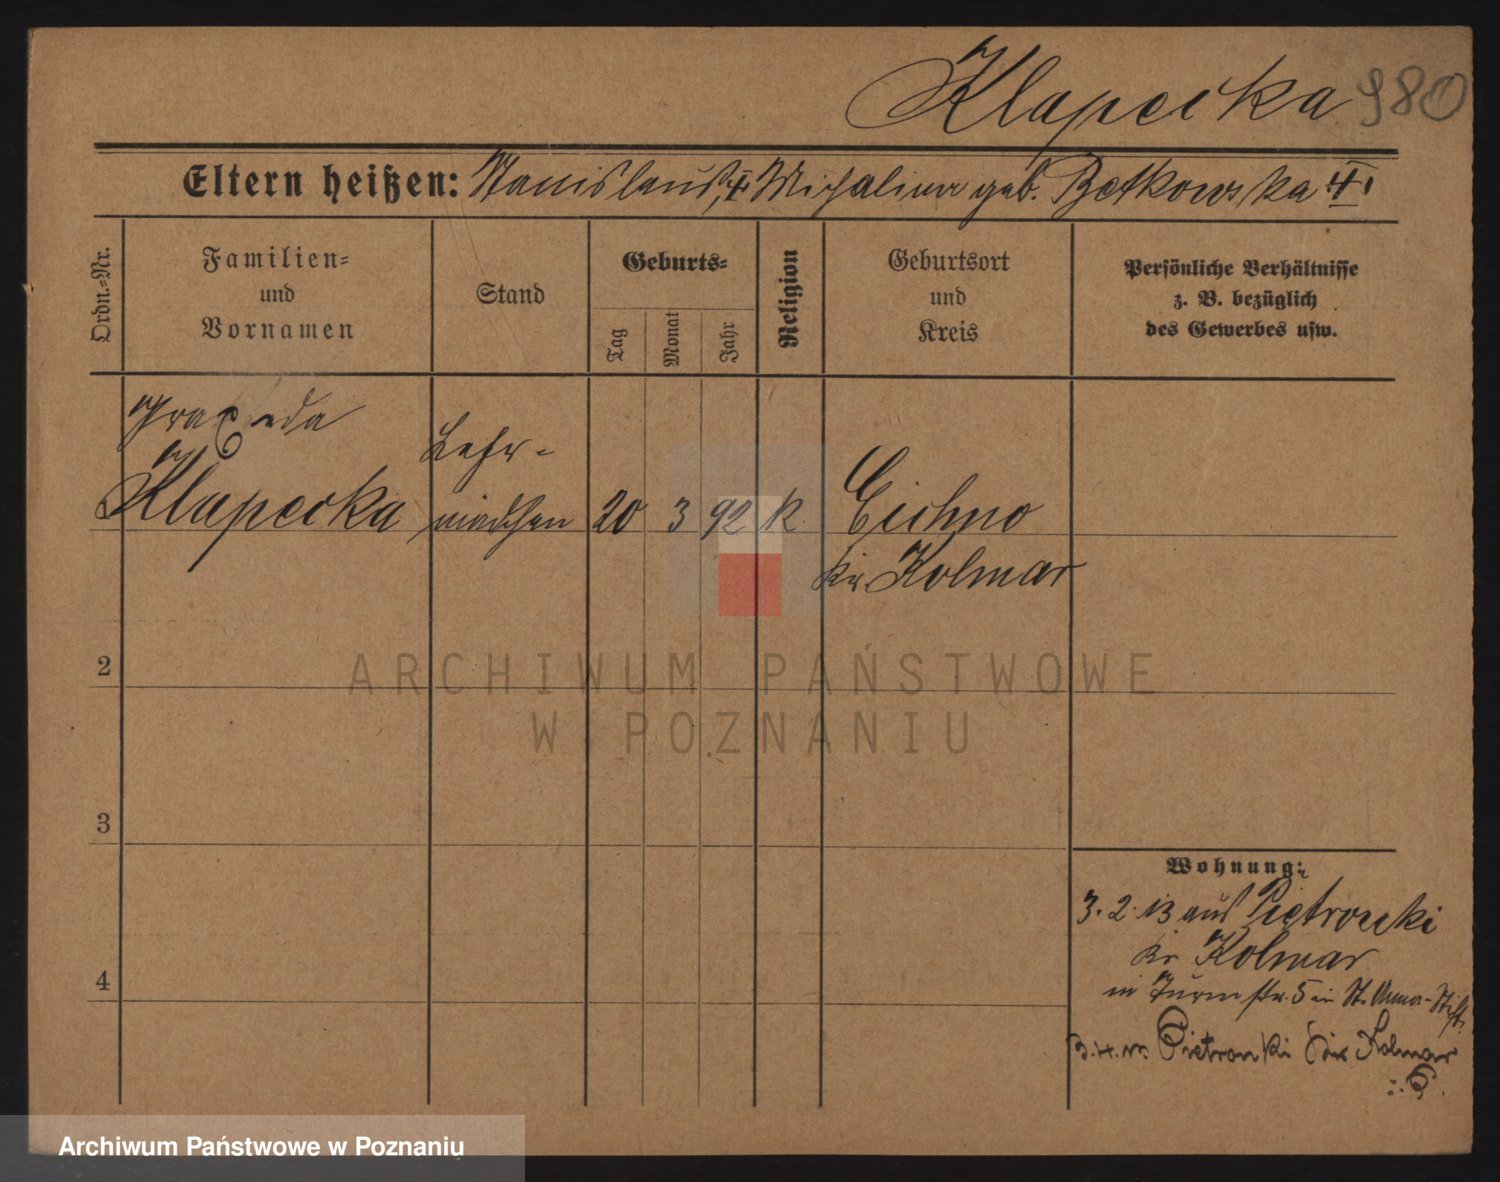 Klapecka 980
Eltern heißen: Stanislaus, Michalina geb. Betkowska
Ordn.-Nr.
Familien-
und
Vornamen
Stand
Geburts-
Tag
Monat
Jahr
Religion
Geburtsort
und
Kreis
Persönliche Verhältnisse
z. B. bezüglich
des Gewerbes usw.
Praxeda
Klapecka
Lehr-
mädchen
20 3 92 k.
Eichno
Kr. Kolmar
2
3
4
Wohnung:
3. 2. 13 aus Pietronki
Kr Kolmar
in Turmstr. 5 in St. Anna-Stift.
Pietronki Kolmar
ARCHIWUM PAŃSTWOWE
W POZNANIU
Archiwum Państwowe w Poznaniu